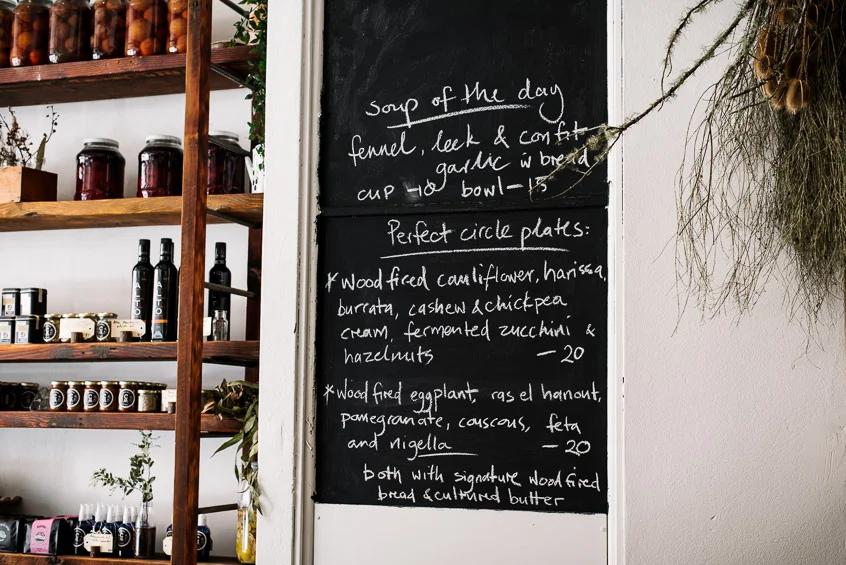 soup of the day
fennel, leek & confit
garlic w bread
cup -10 bowl - 15
Perfect circle plates:
* wood fired cauliflower, harissa,
burrata, cashew & chickpea
cream, fermented zucchini &
hazelnuts - 20
* wood fired eggplant, ras el hanout,
pomegranate, couscous, feta
and nigella - 20
both with signature wood fired
bread & cultured butter
ALTO
ALTO